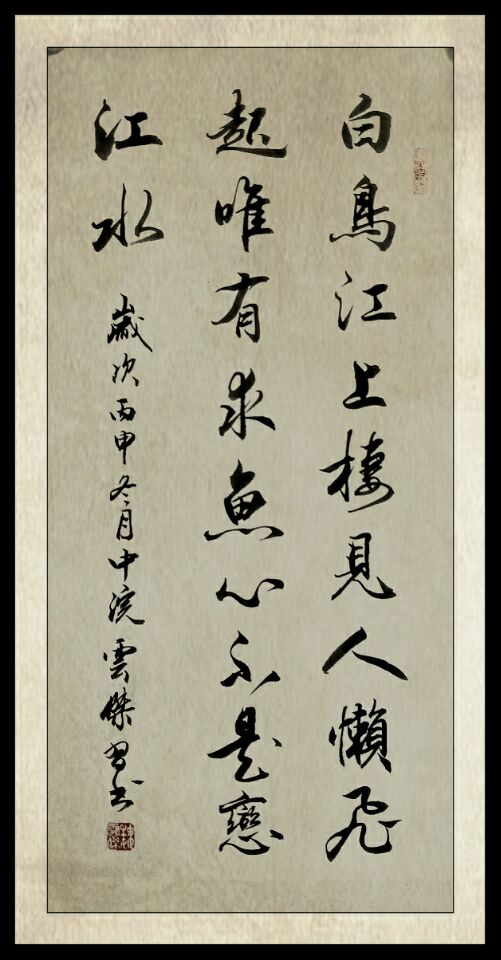 白鳥江上棲見人懶飛
起唯有求魚心不是戀
江水
歲次丙申冬月中浣雲傑習書